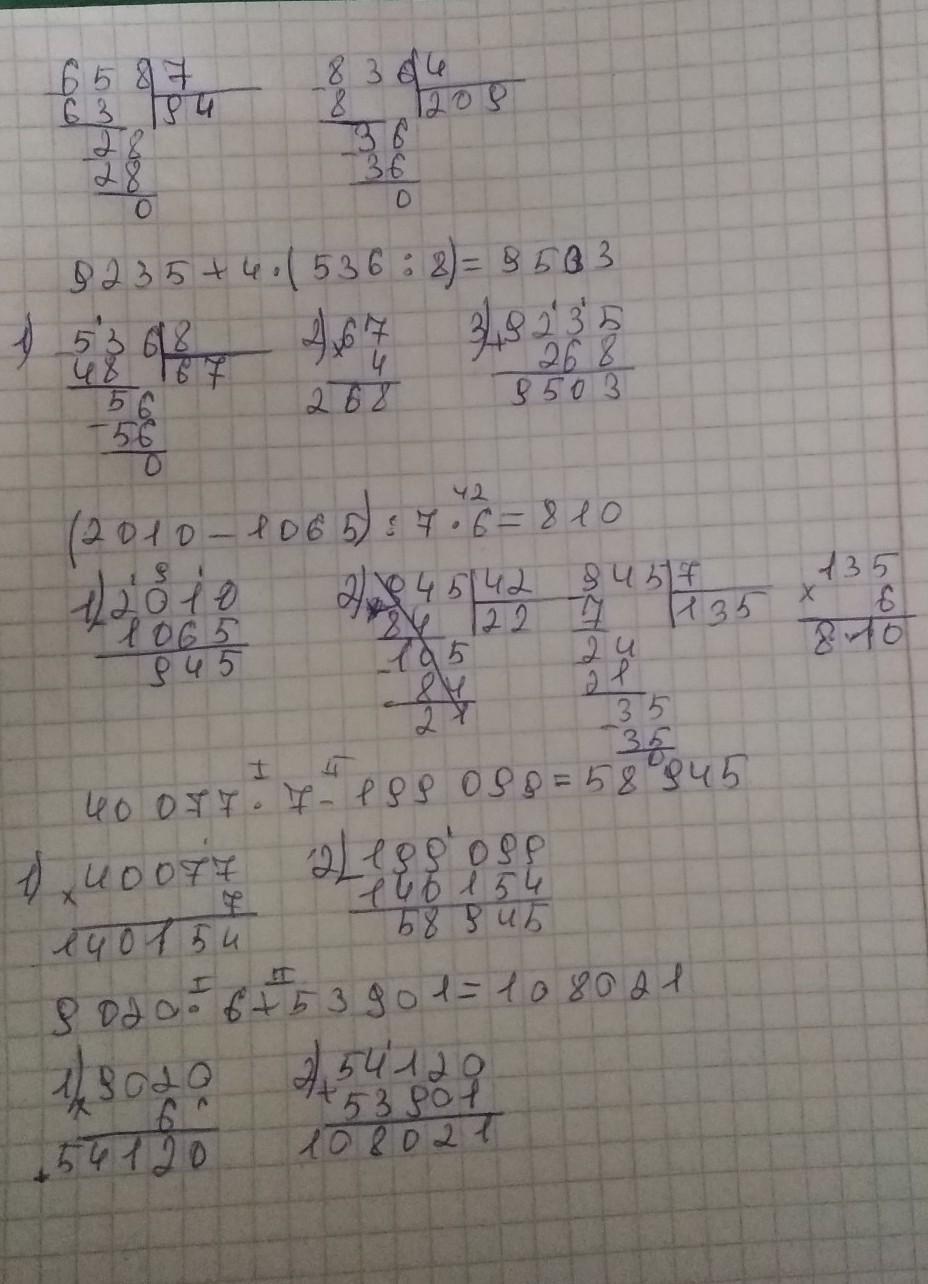 658 7 836 4
63 94 8 209
28 36
28 36
0 0
9235 + 4 · (536 : 8) = 9503
1) 536 8 2) × 67 3) + 9235
48 67 4 268
56 268 9503
- 56
0
42
(2010 - 1065) : 7 · 6 = 810
9
1) 2010 2) 945 42 945 7 × 135
1065 84 22 7 135 6
945 - 105 24 810
84 21
21 - 35
35
0
I II
40 077 · 7 - 199 099 = 58 945
1) × 40077 2) - 199 099
7 140 154
140154 58 945
I II
9020 · 6 + 53901 = 108021
1) × 9020 2) + 54120
6 53901
+ 54120 108021